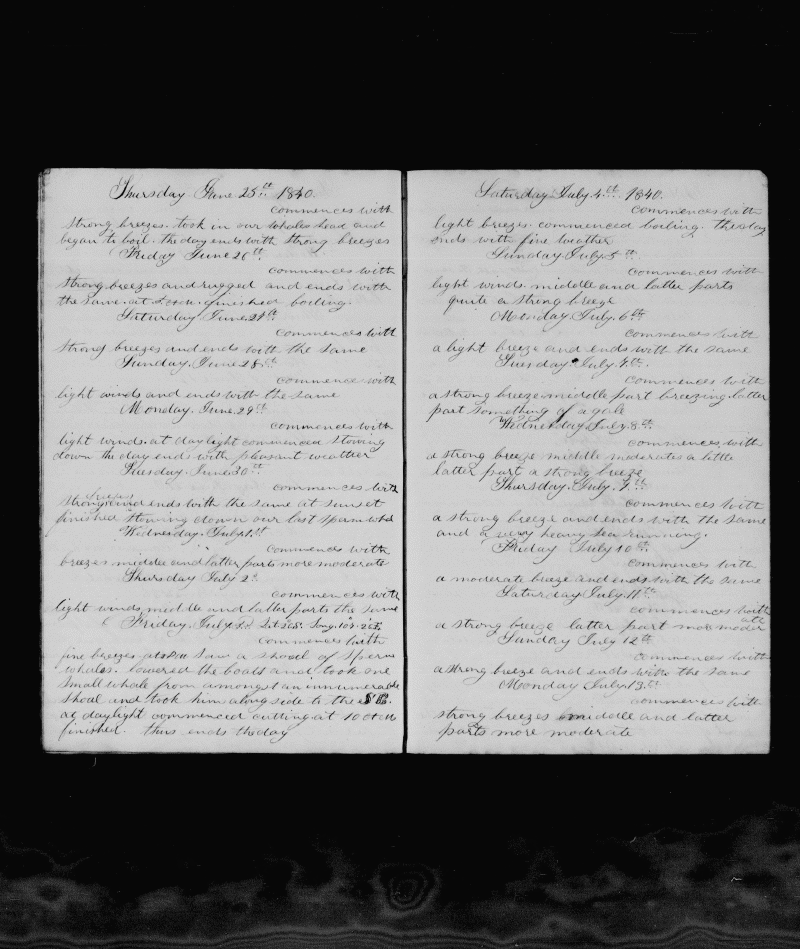 Thursday June 25th 1840.
commences with
strong breezes. took in our whales head and
began to boil. the day ends with strong breezes
Friday June 26th.
commences with
strong breezes and rugged and ends with
the same. at finished boiling.
Saturday June 27th
commences with
strong breezes and ends with the same
Sunday June 28th
commence with
light winds and ends with the same
Monday. June 29th
commences with
light winds. at day light commenced stowing
down the day ends with pleasant weather
Tuesday. June 30th
commences with
breezes
strong and ends with the same at sunset
finished stowing down our last sperm whal
Wednesday. July 1st
commences with
breezes middle and latter parts more moderate
Thursday July 2d
commences with
light winds middle and latter parts the same
Friday. July 3d
commences with
fine breezes at saw a shoal of sperm
whales. lowered the boats and took one
small whale from amongst an innumerable
shoal and took him along side to the
at daylight commenced cutting at 10
finished. thus ends the day
Saturday July 4th 1840.
commences with
light breezes. commenced boiling. the day
ends with fine weather
Sunday July 5th.
commences with
light winds. middle and latter parts
quite a strong breeze
Monday July. 6th
commences with
a light breeze and ends with the same
Tuesday July. 7th.
commences with
a strong breeze middle part breezing latter
part something of a gale
Wednesday July. 8th.
commences with
a strong breeze middle moderates a little
latter part a strong breeze
Thursday. July. 9th
commences with
a strong breeze and ends with the same
and a very heavy sea running.
Friday July 10th.
commences with
a moderate breeze and ends with the same
Saturday July. 11th.
commences with
a strong breeze latter part more moder
ate
Sunday July 12th
commences with
a strong breeze and ends with the same
Monday July 13th
commences with
strong breezes middle and latter
parts more moderate